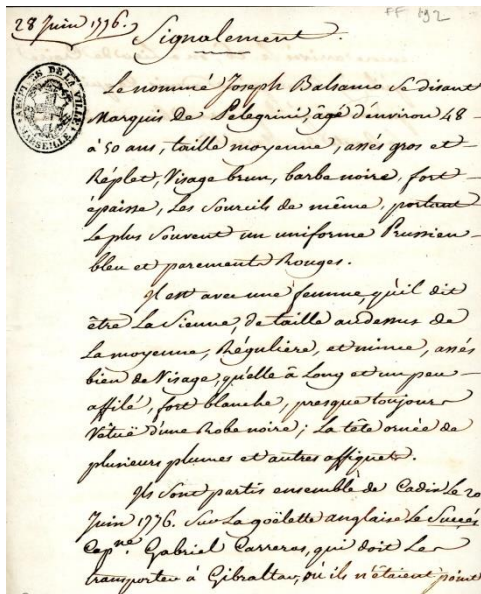 FF 192
28 Juin 1776.
Signalement.
ARCHIVES DE LA VILLE
MARSEILLE
Le nommé Joseph Balsamo se disant
Marquis De Pelegrini, âgé d'environ 48
à 50 ans, taille moyenne, assés gros et
Réplet, Visage brun, barbe noire, fort
épaisse, Les Sourcils de même, portant
Le plus Souvent un uniforme Prussien
bleu et parements Rouges.
Il est avec une femme, qu'il dit
être La Sienne, de taille audessus de
La moyenne, Régulière, et mince, assés
bien de Visage, qu'elle â Long et un peu
affilé, fort blanche, presque toujours
Vêtuë d'une Robe noire; La tête ornée de
plusieurs plumes et autres affiquets.
Ils Sont partis ensemble de Cadix Le 20
Juin 1776. Sur La goëlette anglaise Le Succés
Cap.ne Gabriel Carreras, qui doit Les
transporter à Gibraltar, où ils n'étaient point